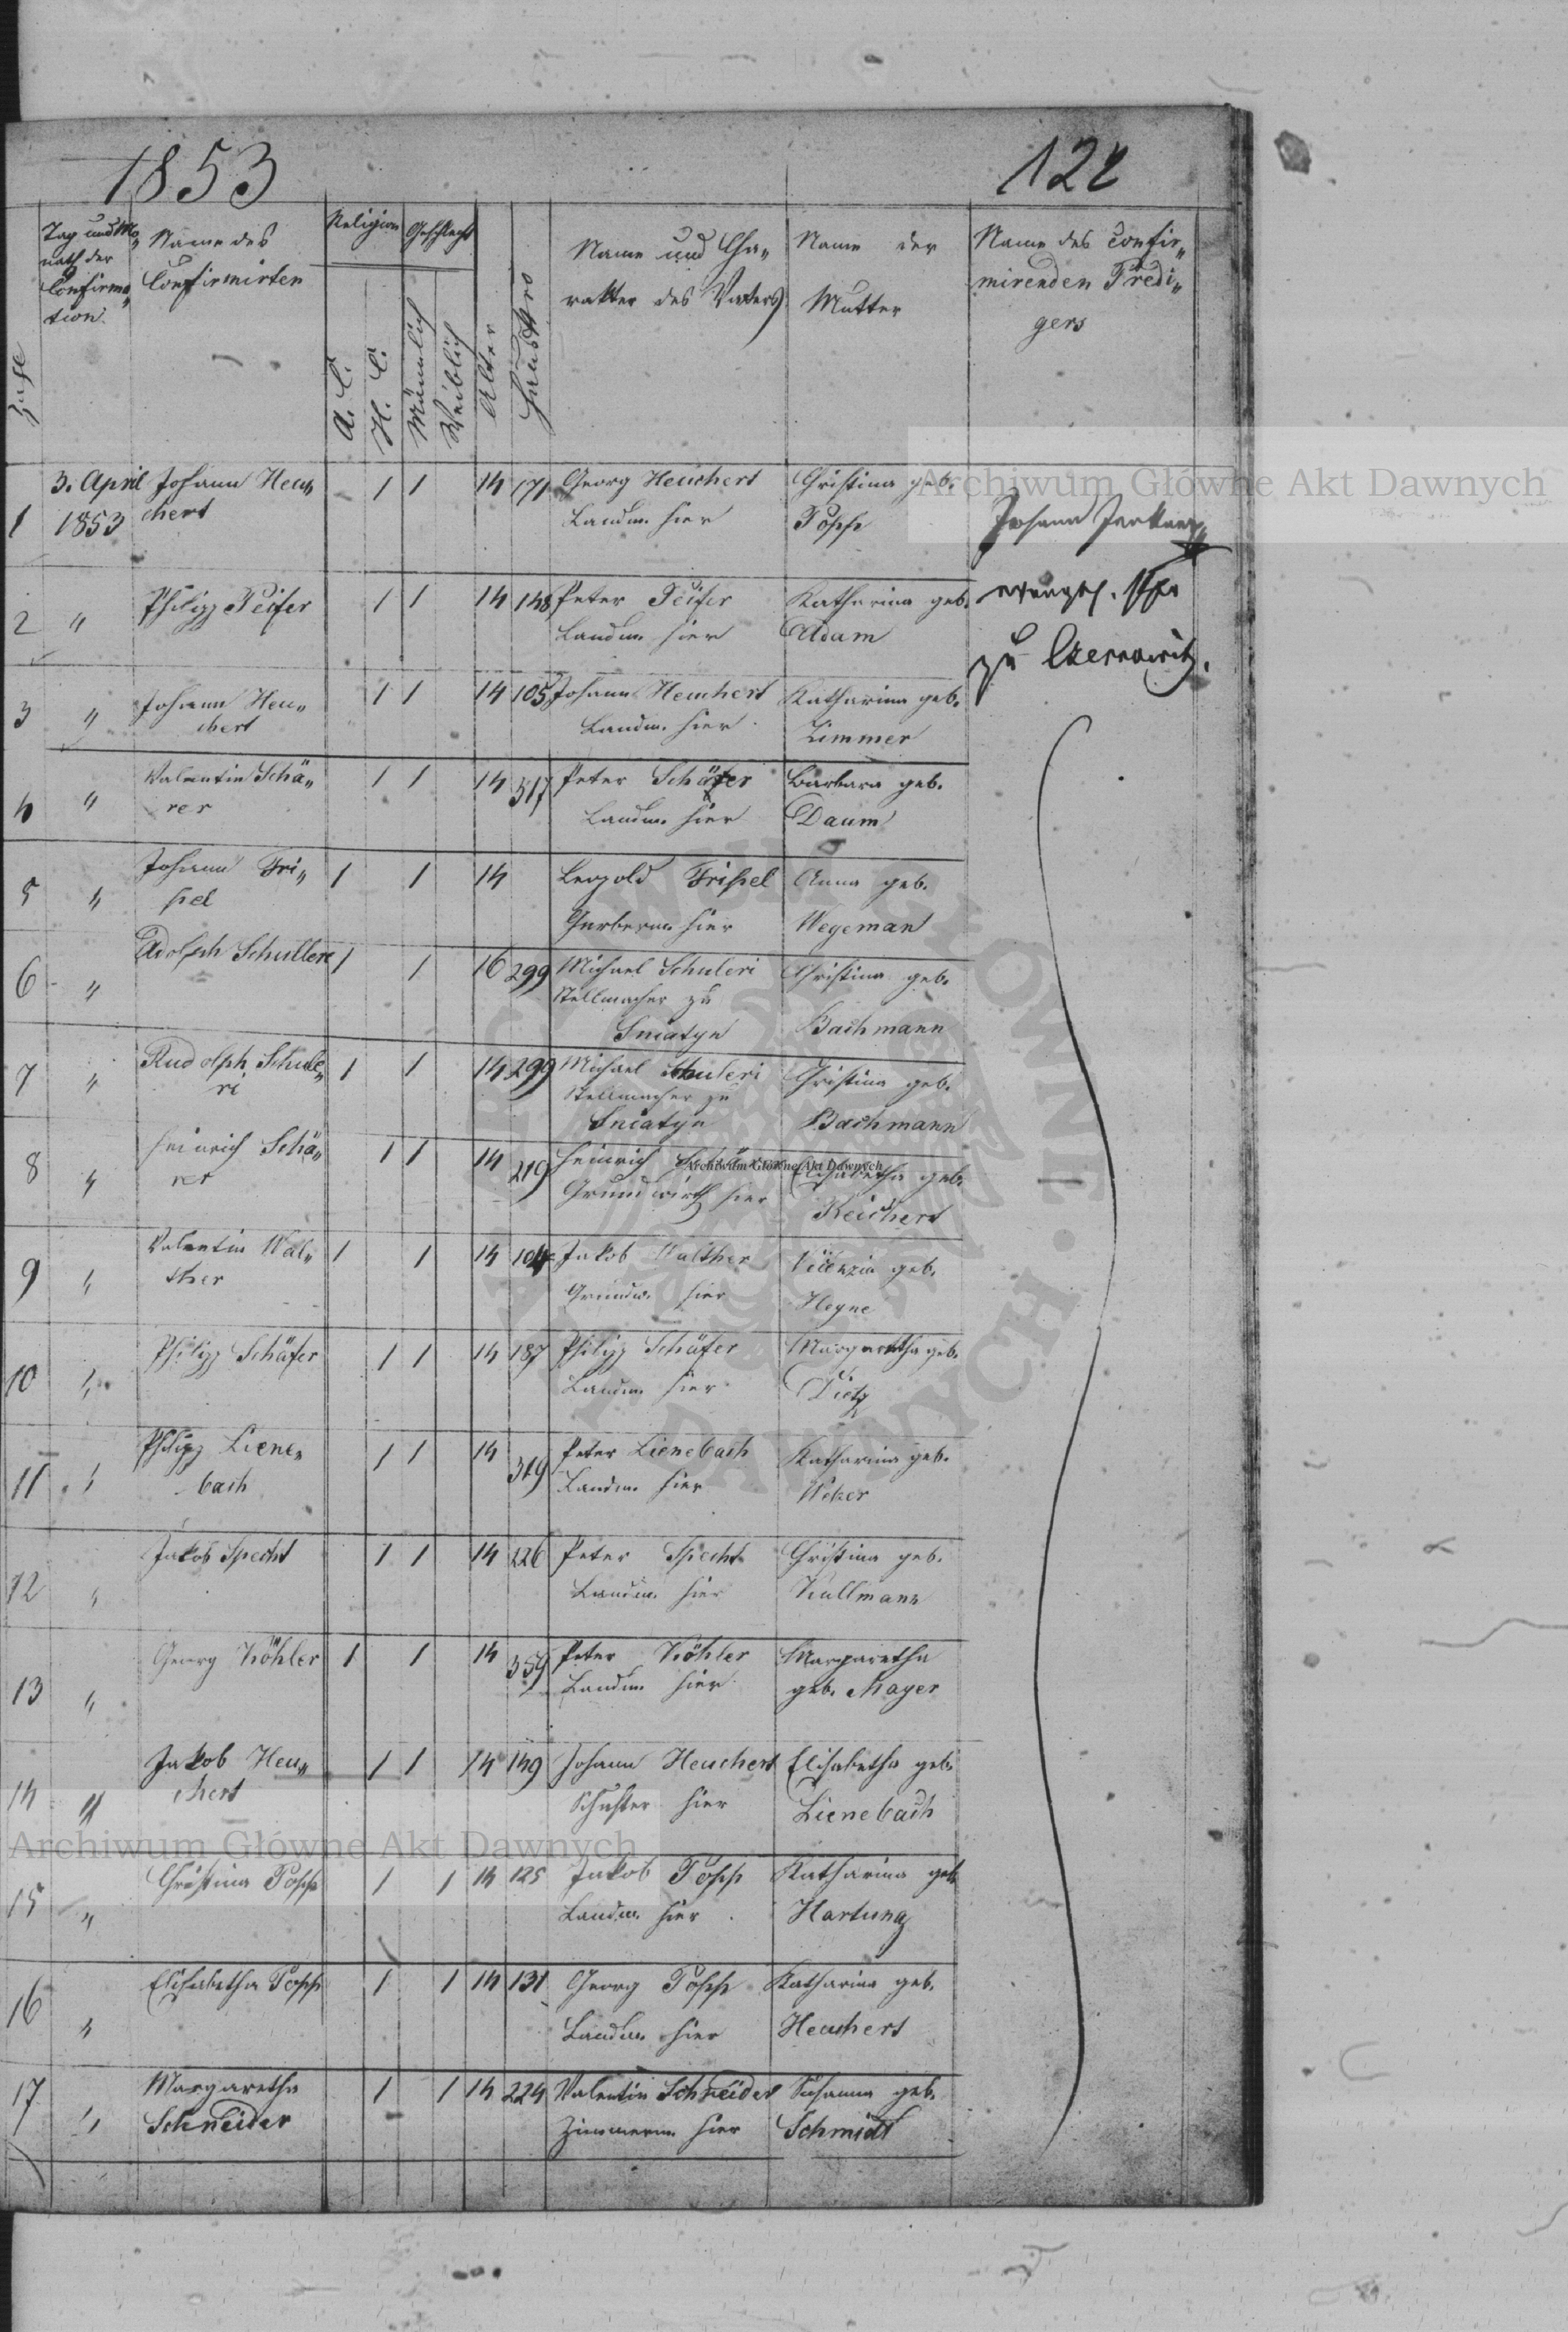 1853
122
Zahl
Tag und Mo„
nath der
Confirma„
tion.
Name des
Confirmirten
Religion
A. C.
H. C.
Geschlecht
Männlich
Weiblich
Alter
Haus Nro
Name und Cha„
rakter des Vaters
Name der
Mutter
Name des Confir„
mirenden Predi„
gers
1 3. April Johann Heu„ 1 1 14 171 Georg Heuchert Christina geb.
1853 chert Landm. hier Popp
Johann
evangel.
zu Czernowitz.
2 „ Philipp Peifer 1 1 14 148 Peter Peifer Katharina geb.
Landm. hier Adam
3 „ Johann Heu„ 1 1 14 105 Johann Heuchert Katharina geb.
chert Landm. hier Zimmer
4 „ Valentin Schä„ 1 1 14 317 Peter Schäfer Barbara geb.
rer Landm. hier Daum
5 „ Johann Tri„ 1 1 14 Leopold Trißel Anna geb.
ßel Gerberm. hier Wegeman
6 „ Adolph Schulleri 1 1 16 299 Michael Schuleri Christina geb.
Stellmacher zu
Sniatyn Bachmann
7 „ Rudolph Schule„ 1 1 14 299 Michael Schuleri Christina geb.
ri Stellmacher zu
Sniatyn Bachmann
8 „ Heinrich Schä„ 1 1 14 219 Heinrich Elisabetha geb.
rer Grundwirth hier Reichert
9 „ Valentin Wal„ 1 1 14 104 Jakob Walther geb.
ther Grundw. hier Heyne
10 „ Philipp Schäfer 1 1 14 187 Philipp Schäfer Margaretha geb.
Landm. hier Dietz
11 „ Philipp Liene„ 1 1 14 319 Peter Lienebach Katharina geb.
bach Landm. hier Weber
12 „ Jakob Specht 1 1 14 226 Peter Specht Christina geb.
Landm. hier Kullmann
13 „ Georg Köhler 1 1 14 359 Peter Köhler Margaretha
Landm. hier geb. Mayer
14 „ Jakob Heu„ 1 1 14 149 Johann Heuchert Elisabetha geb.
chert Schuster hier Lienebach
15 „ Christina Popp 1 1 14 125 Jakob Popp Katharina geb.
Landm. hier Hartung
16 „ Elisabetha Popp 1 1 14 131 Georg Popp Katharina geb.
Landm. hier Heuchert
17 „ Margaretha 1 1 14 224 Valentin Schneider Susanna geb.
Schneider Zimmerm. hier Schmidt
Archiwum Główne Akt Dawnych
Archiwum Główne Akt Dawnych
Archiwum Główne Akt Dawnych
ARCHIWUM GŁÓWNE AKT DAWNYCH